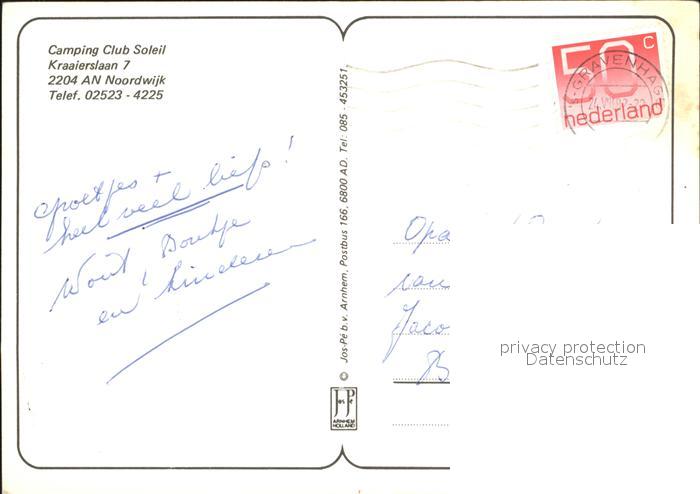 Camping Club Soleil
Kraaierslaan 7
2204 AN Noordwijk
Telef. 02523 - 4225
groetjes +
heel veel liefs!
Wout, Doutje
en kinderen
© Jos-Pé b.v. Arnhem, Postbus 166, 6800 AD. Tel: 085 - 453251
Jos Pé
ARNHEM
HOLLAND
50 C
nederland
'S-GRAVENHAG
Opa
van
Jaco
B
privacy protection
Datenschutz